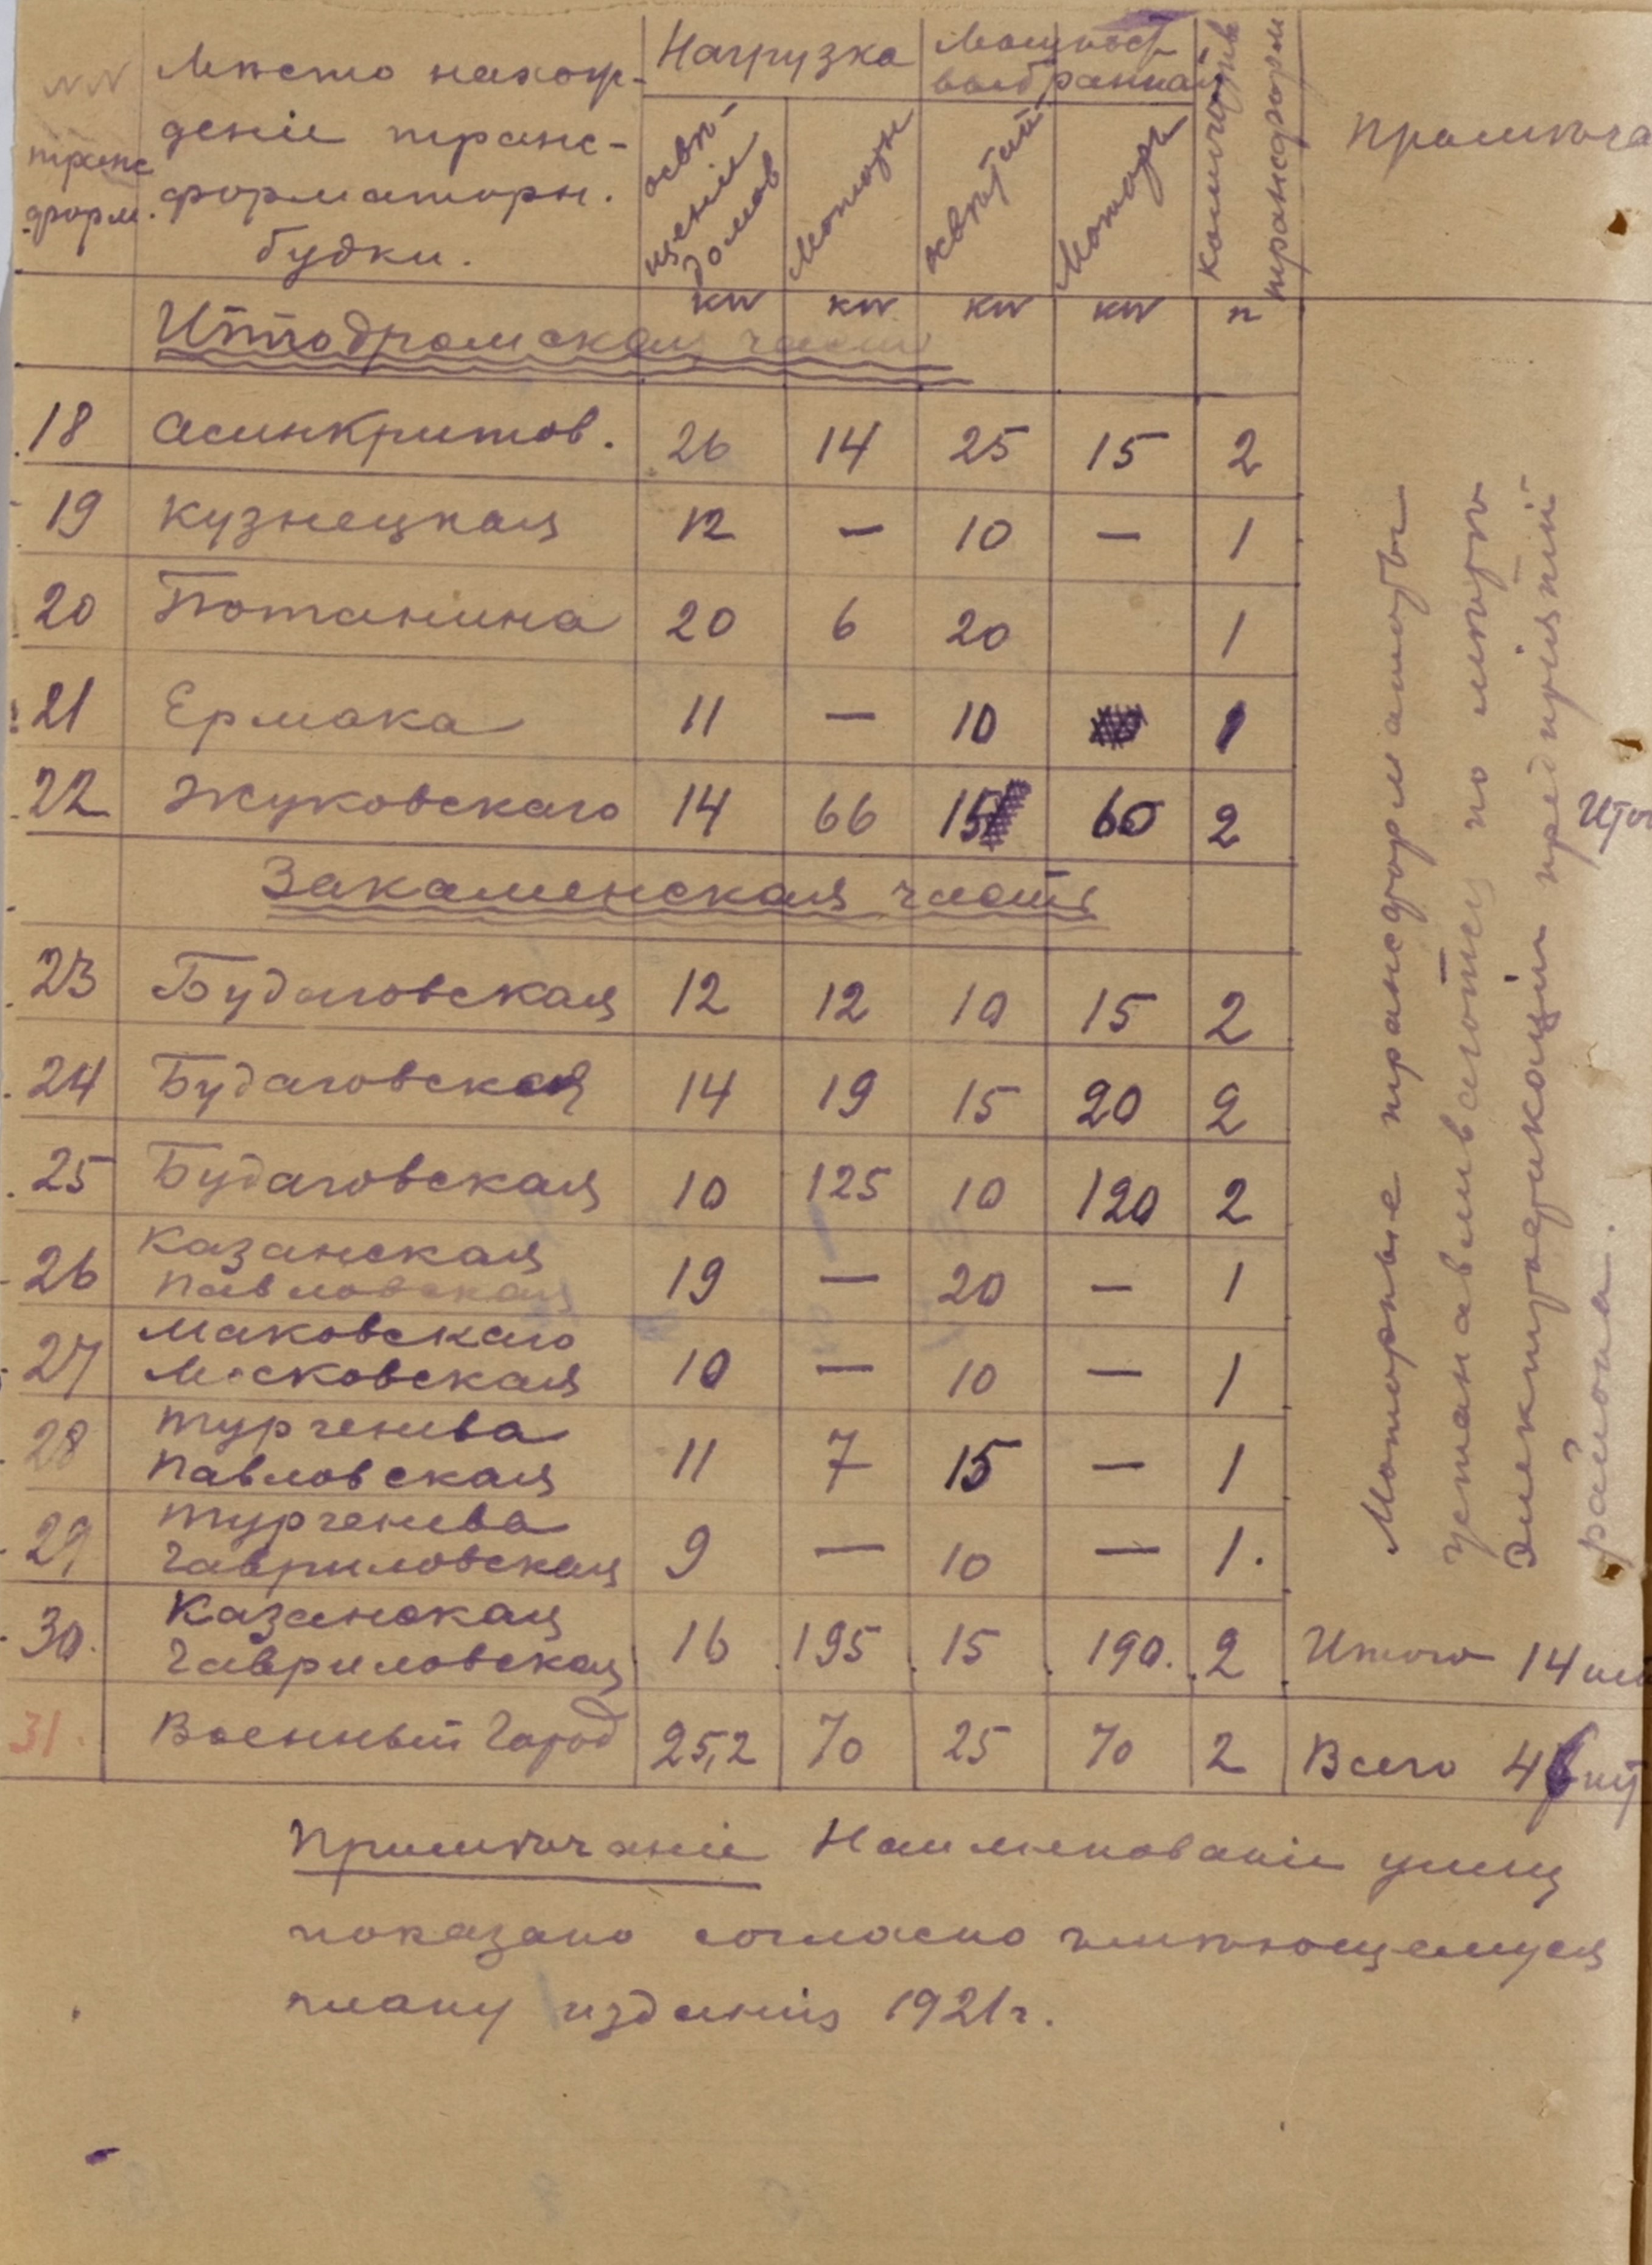 NN транс форм. | Мѣсто нахож-дение транс-форматорн. будки. | Нагрузка | Мощност выбранная | Количество трансформ | Примѣча
освѣ-щеніи домов | Моторн | освѣщен | Моторн
kw | kw | kw | kw | n
Иподромская часть
18 Асинкритов. 26 14 25 15 2
19 Кузнецкая 12 — 10 — 1
20 Потанина 20 6 20 1
21 Ермака 11 — 10 1
22 Жуковскаго 14 66 15 60 2
Ито
Закаменская часть
23 Будаговская 12 12 10 15 2
24 Будаговская 14 19 15 20 2
25 Будаговская 10 125 10 120 2
26 Казанская Павловская 19 — 20 — 1
27 Маковскаго Московская 10 — 10 — 1
28 Тургенева Павловская 11 7 15 — 1
29 Тургенева Гавриловская 9 — 10 — 1.
30. Казанская Гавриловская 16 195 15 190. 2 Итого 14 шт
31. Военный Город 25,2 70 25 70 2 Всего 46 шт
Моторные трансформаторы
устанавливаются по мѣрѣ
Электрофикаціи предпріятій
района.
Примѣчаніе Наименованіе улиц
показано согласно имѣющемуся
плану изданія 1921г.